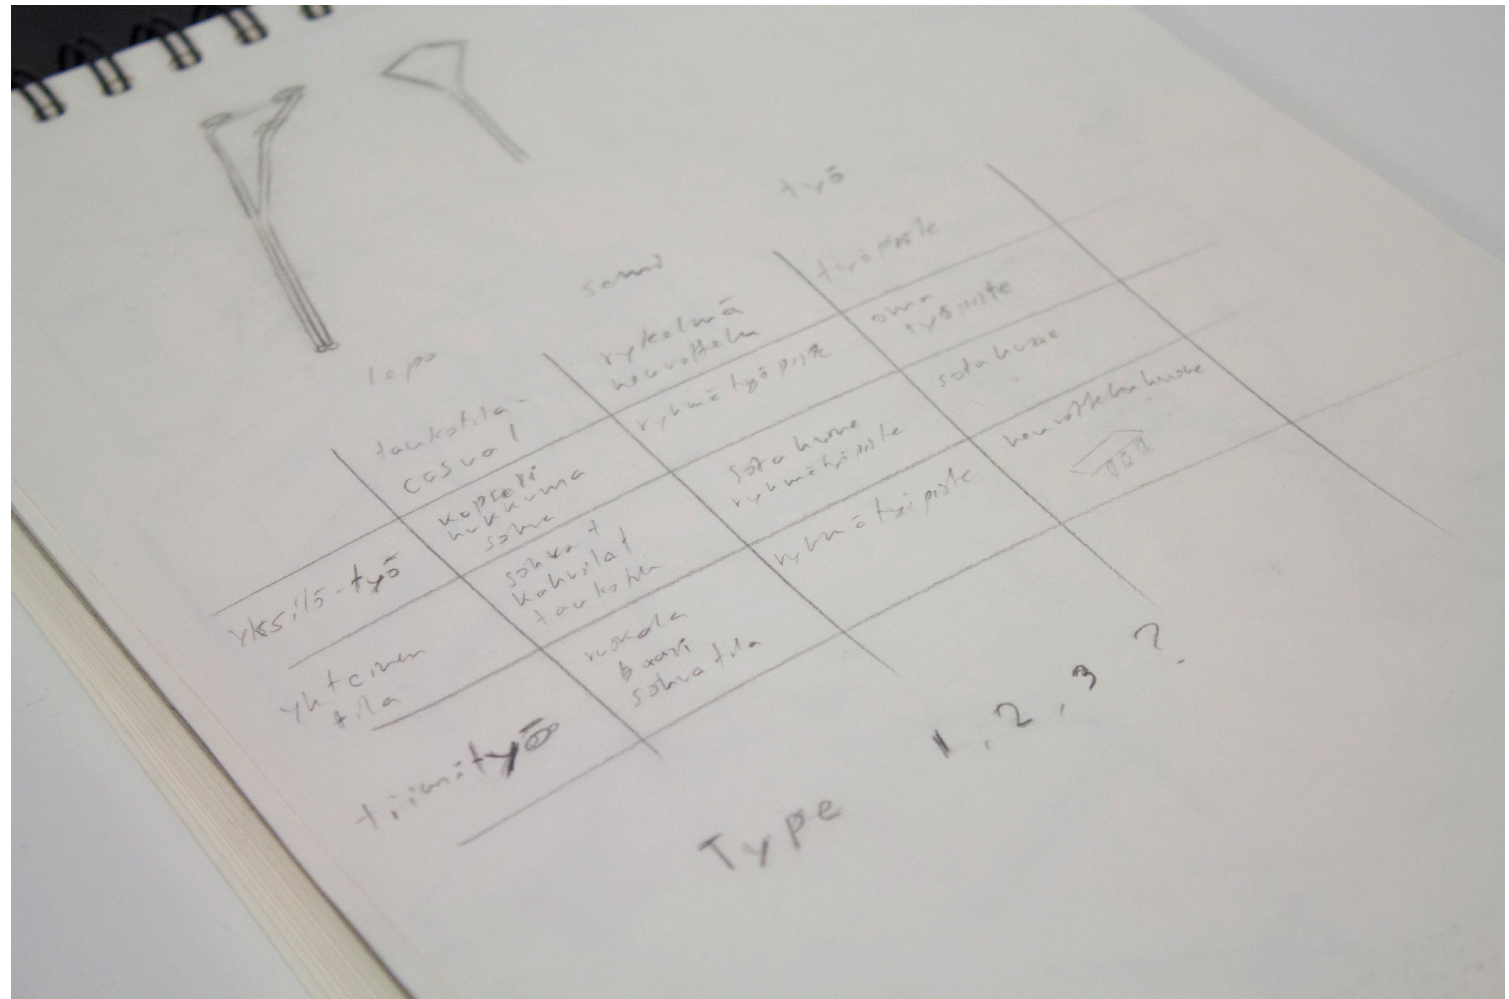 työ
semi
lepo
työpiste
rykelmä
neuvottelu
taukotila -
casual
yksilö-työ
kapseli
nukkuma
sohva
ryhmätyöpiste
oma
työpiste
yhteinen
tila
sohvat
kahvilat
taukotila
sotahuone
ryhmätyöpiste
sotahuone
tiimityö
ruokala
baari
sohvatila
ryhmätyöpiste
neuvotteluhuone
Type 1, 2, 3 ?